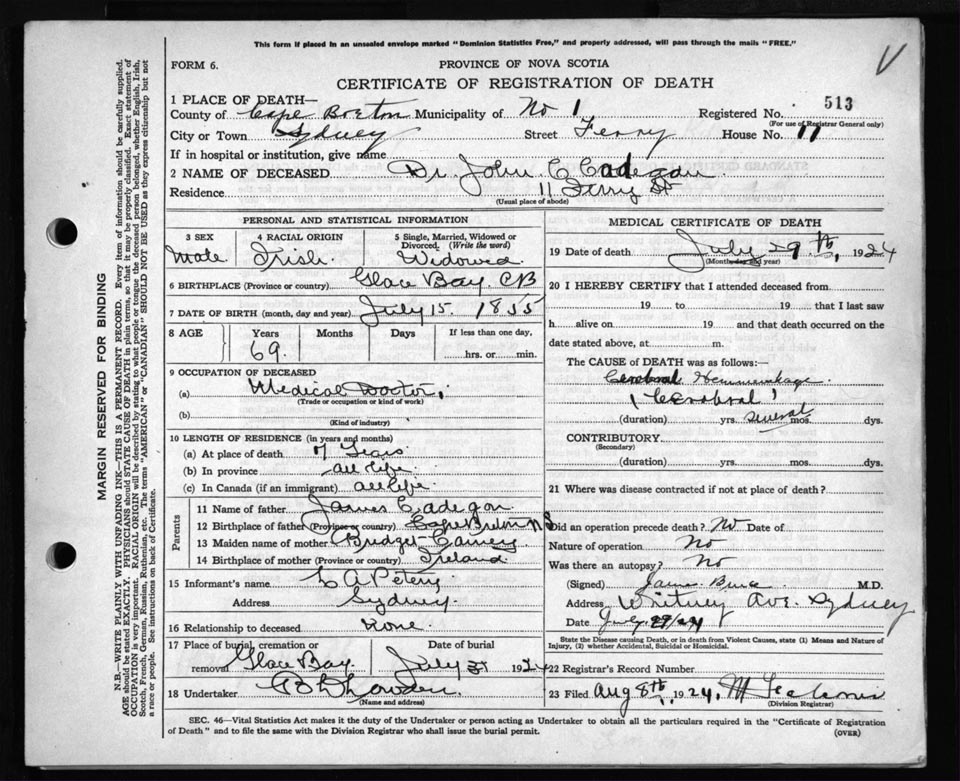 This form if placed in an unsealed envelope marked "Dominion Statistics Free," and properly addressed, will pass through the mails "FREE."
FORM 6.
PROVINCE OF NOVA SCOTIA
CERTIFICATE OF REGISTRATION OF DEATH
1 PLACE OF DEATH—
County of Cape Breton Municipality of No 1 Registered No. 513
(For use of Registrar General only)
City or Town Sydney Street Ferry House No. 11
If in hospital or institution, give name
2 NAME OF DECEASED Dr. John C Cadegan
Residence 11 Ferry St
(Usual place of abode)
PERSONAL AND STATISTICAL INFORMATION
3 SEX Male
4 RACIAL ORIGIN Irish
5 Single, Married, Widowed or Divorced. (Write the word) Widowed
6 BIRTHPLACE (Province or country) Glace Bay CB
7 DATE OF BIRTH (month, day and year) July 15 1855
8 AGE Years Months Days If less than one day,
69 hrs. or min.
9 OCCUPATION OF DECEASED
(a) Medical Doctor
(Trade or occupation or kind of work)
(b)
(Kind of industry)
10 LENGTH OF RESIDENCE (in years and months)
(a) At place of death 7 Years
(b) In province all life
(c) In Canada (if an immigrant) all life
Parents
11 Name of father James Cadegan
12 Birthplace of father (Province or country) Cape Breton N S
13 Maiden name of mother Bridget
14 Birthplace of mother (Province or country) Ireland
15 Informant's name
Address Sydney
16 Relationship to deceased None
17 Place of burial, cremation or removal Glace Bay Date of burial July 31 1924
18 Undertaker
(Name and address)
MEDICAL CERTIFICATE OF DEATH
19 Date of death July 29th, 1924
(Month, day and year)
20 I HEREBY CERTIFY that I attended deceased from
19 to 19 that I last saw
h alive on 19 and that death occurred on the
date stated above, at m.
The CAUSE of DEATH was as follows:
Cerebral Hemmorhage
(Cerebral)
(duration) yrs. several mos. dys.
CONTRIBUTORY
(Secondary)
(duration) yrs. mos. dys.
21 Where was disease contracted if not at place of death?
Did an operation precede death? No Date of
Nature of operation No
Was there an autopsy? No
(Signed) James Bruce M.D.
Address Whitney Ave. Sydney
Date July 29/24
State the Disease causing Death, or in death from Violent Causes, state (1) Means and Nature of Injury, (2) whether Accidental, Suicidal or Homicidal.
22 Registrar's Record Number
23 Filed Aug 8th, 1924,
(Division Registrar)
SEC. 46—Vital Statistics Act makes it the duty of the Undertaker or person acting as Undertaker to obtain all the particulars required in the "Certificate of Registration
of Death" and to file the same with the Division Registrar who shall issue the burial permit.
(OVER)
MARGIN RESERVED FOR BINDING
N.B.—WRITE PLAINLY WITH UNFADING INK—THIS IS A PERMANENT RECORD. Every item of information should be carefully supplied.
AGE should be stated EXACTLY. PHYSICIANS should STATE CAUSE OF DEATH in plain terms, so that it may be properly classified. Exact statement of
OCCUPATION is very important. RACIAL ORIGIN will be described by stating to what people or tongue the deceased person belonged, whether English, Irish,
Scotch, French, German, Russian, Ruthenian, etc. The terms "AMERICAN" or "CANADIAN" SHOULD NOT BE USED as they express citizenship but not
a race or people. See instructions on back of Certificate.